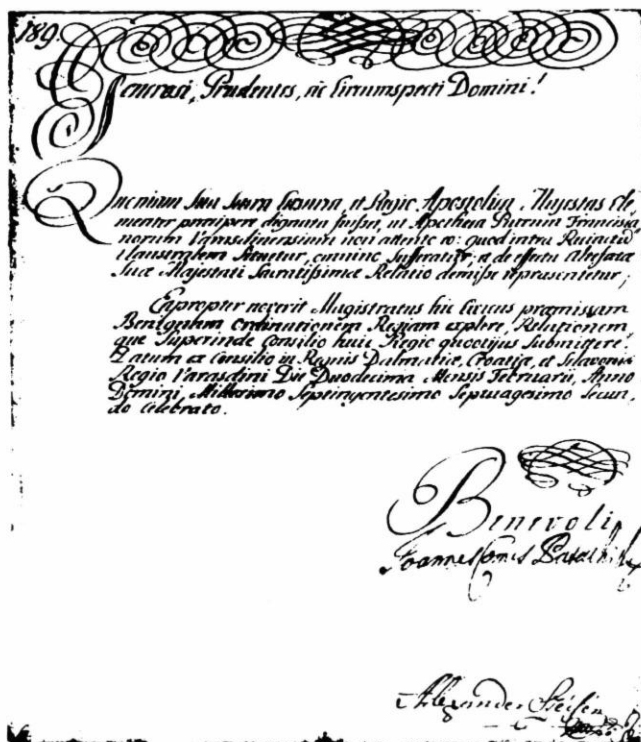 189.
Generosi, Prudentes, ac Circumspecti Domini!
Quoniam Sua Sacra Caesarea, et Regio Apostolica Majestas Cle
menter praecipere dignata fuisset, ut Apotheca Patrum Francisca
norum Varasdinensium non attento eo: quod intra
Claustralem Servetur, omnino Sufferatur, et de effectu altefatae
Suae Majestati Sacratissimae Relatio demisse repraesentetur;
Eapropter noverit Magistratus hic Civicus praemissam
Benignam Ordinationem Regiam explere, Relationem
que Superinde Consilio huic Regio quocyus Submittere.
Datum ex Consilio in Regnis Dalmatiae, Croatiae, et Sclavoniae
Regio Varasdini Die Duodecima Mensis Februarii, Anno
Domini, Millesimo Septingentesimo Septuagesimo Secun
do celebrato.
Benevoli
Joannes Comes
Alexander